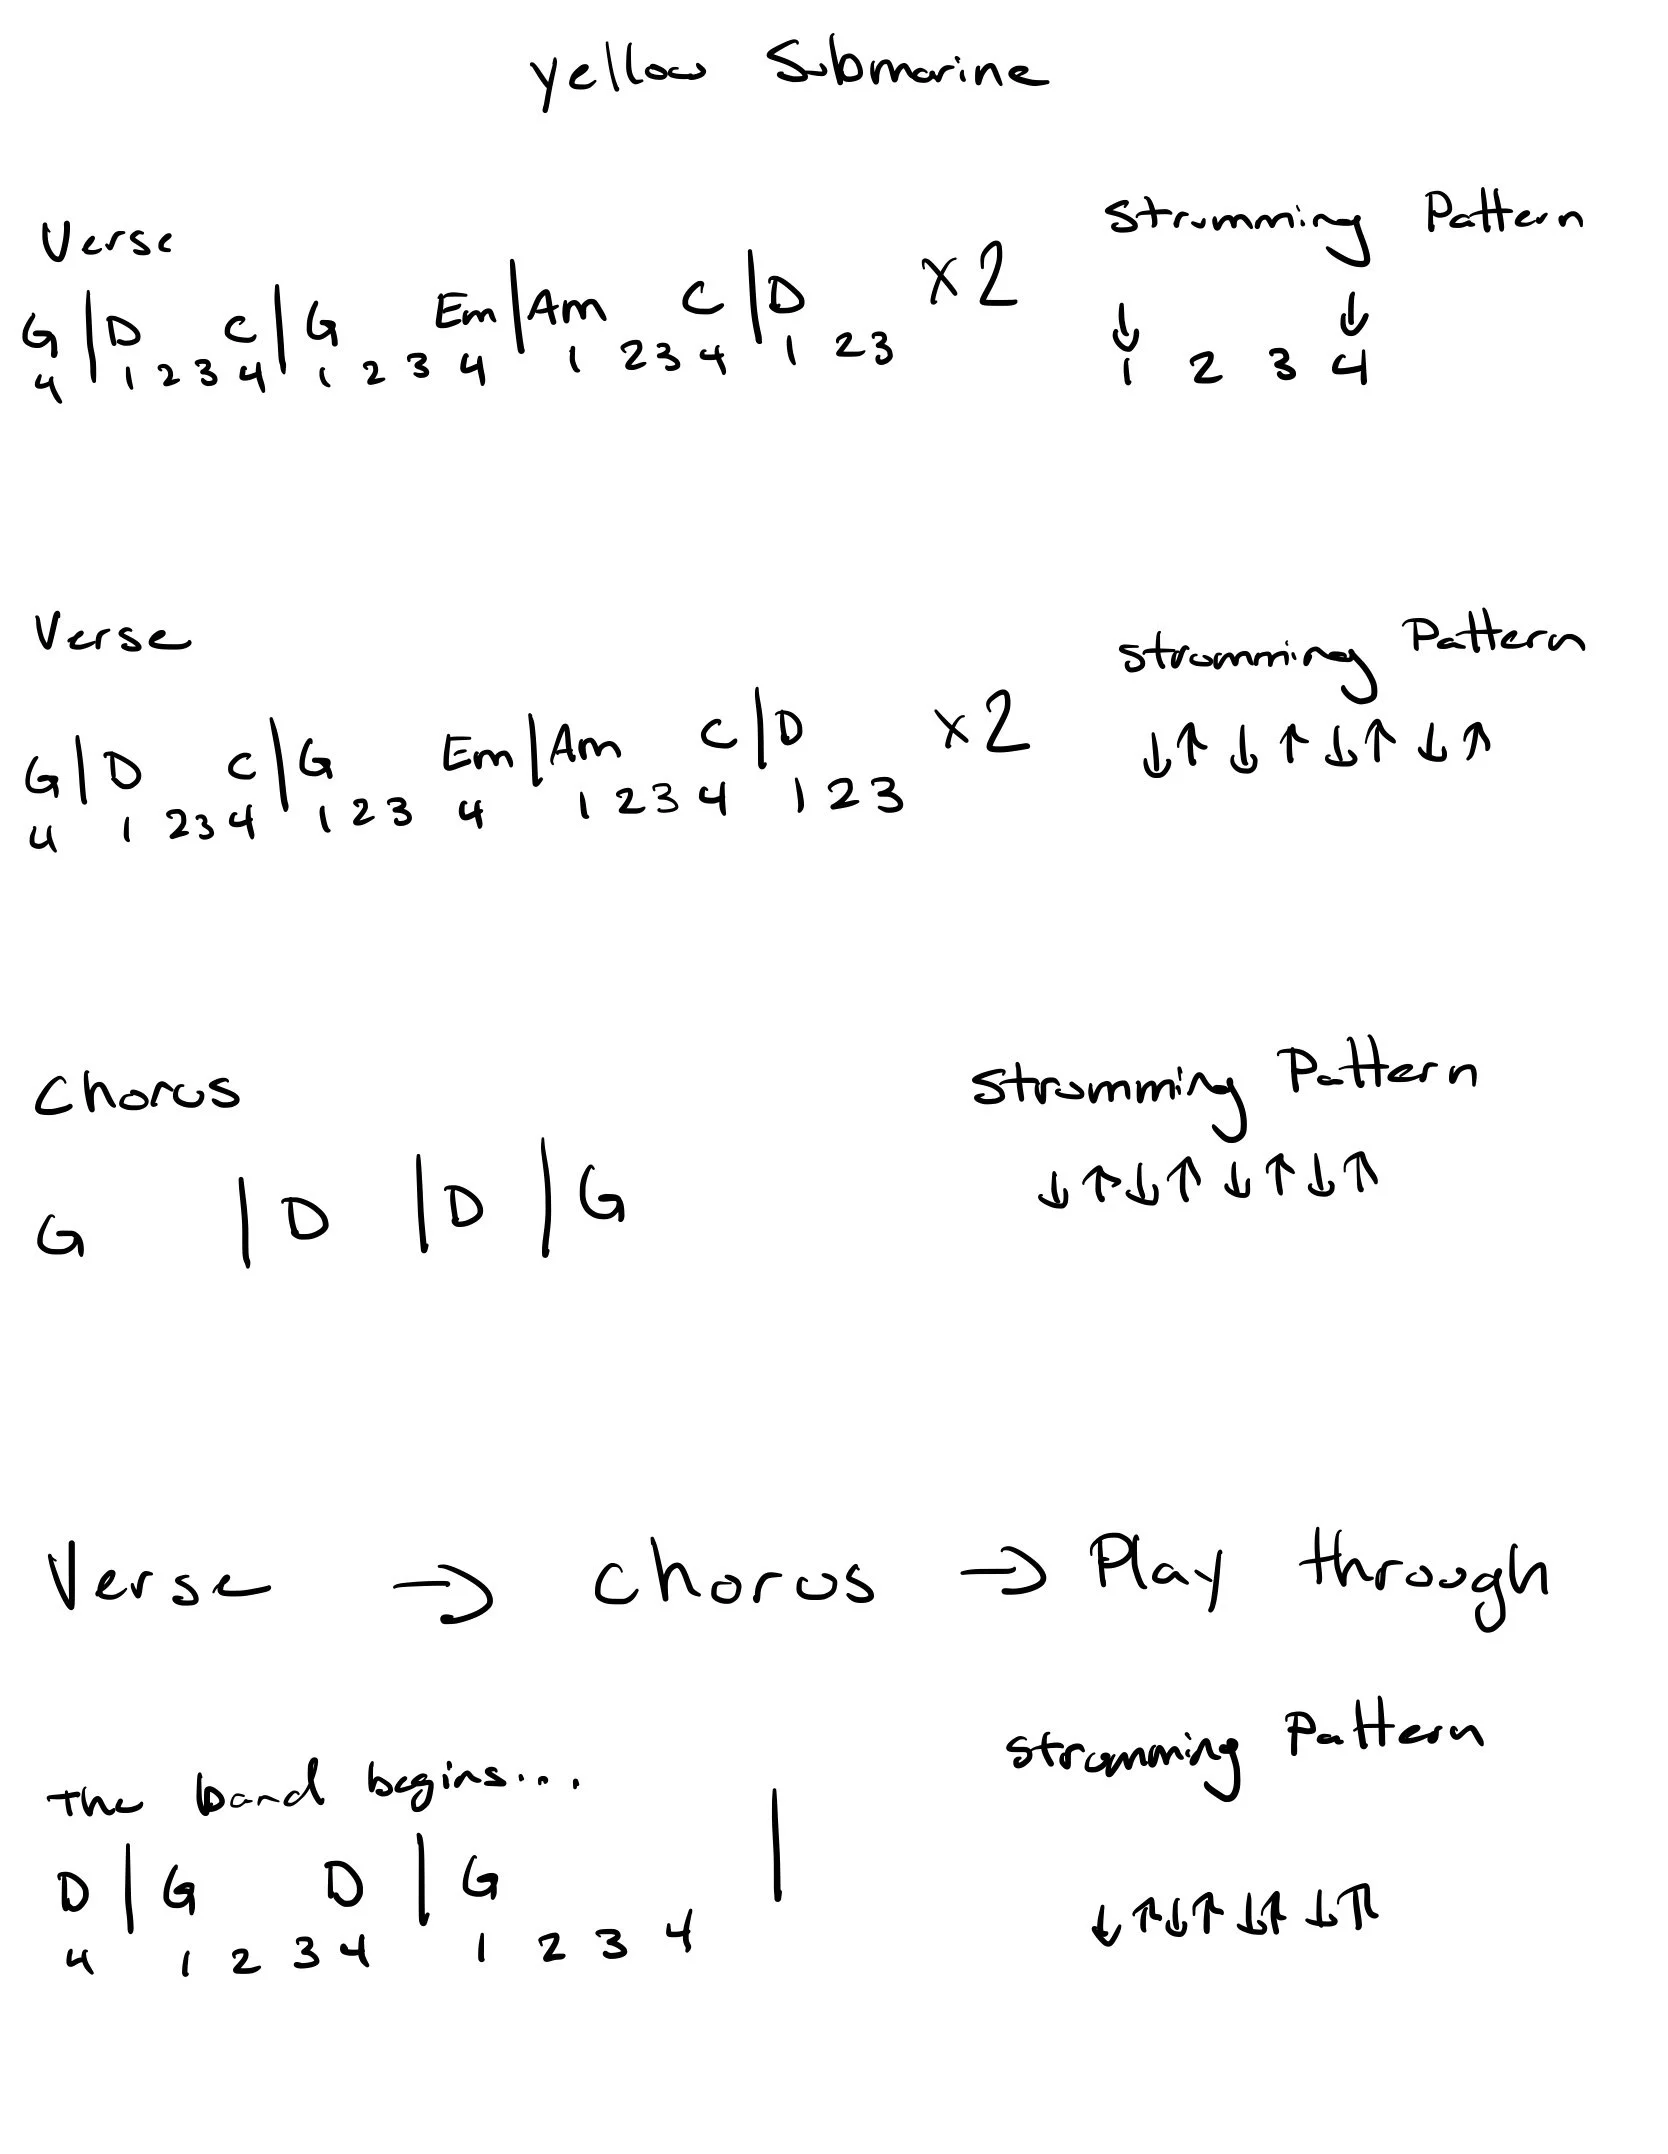 yellow Submarine
Verse
Strumming Pattern
G | D C | G Em | Am C | D x2
↓ ↓
4 1 2 3 4 1 2 3 4 1 2 3 4 1 2 3
1 2 3 4
Verse
Strumming Pattern
G | D C | G Em | Am C | D x2
↓ ↑ ↓ ↑ ↓ ↑ ↓ ↑
4 1 2 3 4 1 2 3 4 1 2 3 4 1 2 3
Chorus
Strumming Pattern
G | D | D | G
↓ ↑ ↓ ↑ ↓ ↑ ↓ ↑
Verse → Chorus → Play through
Strumming Pattern
The band begins...
D | G D | G |
4 1 2 3 4 1 2 3 4
↓ ↑ ↓ ↑ ↓ ↑ ↓ ↑